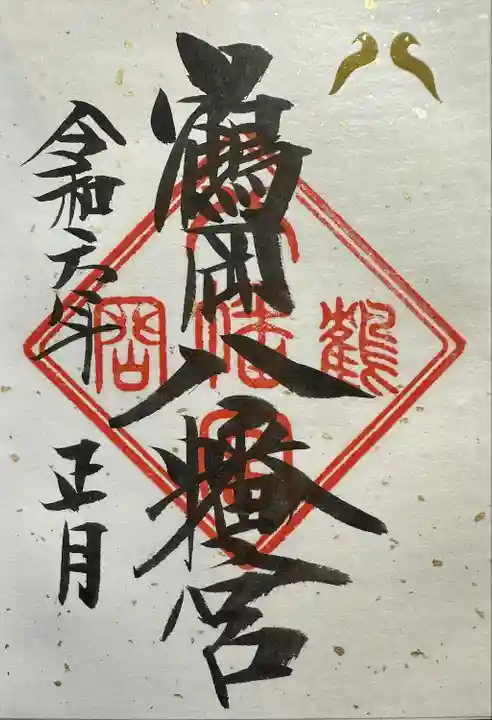 鶴岡八幡宮
令和六年 正月
鶴
岡